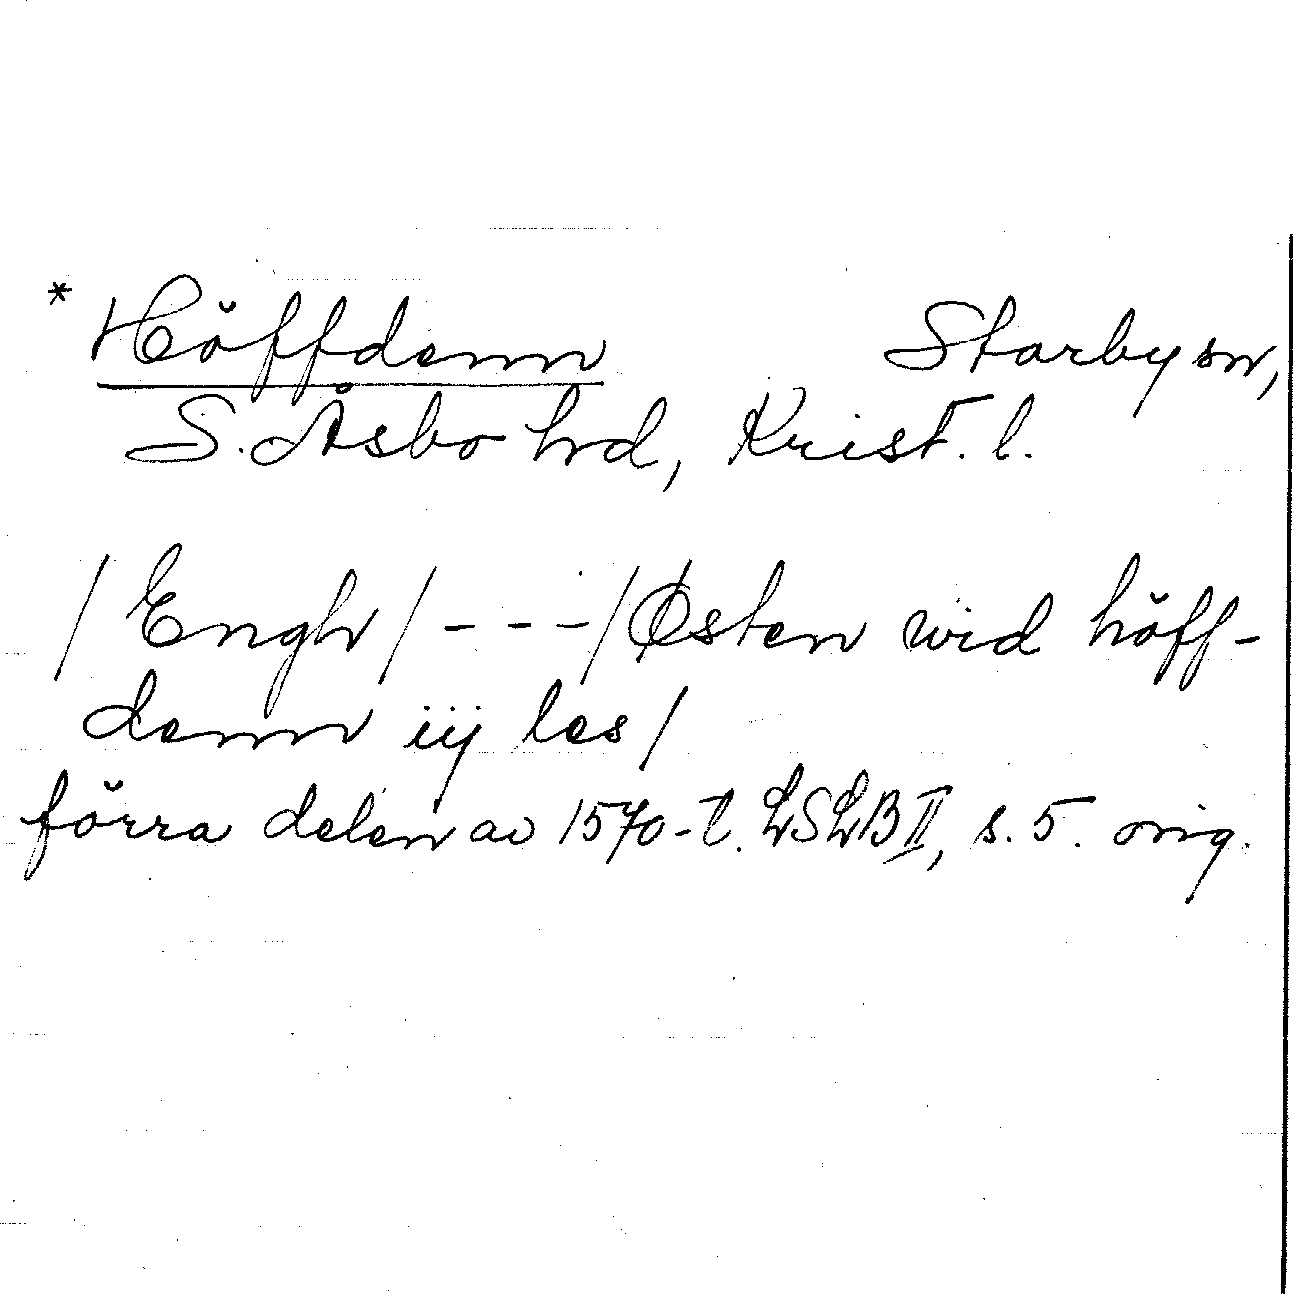 * Höffdenn Starby sn,
S. Åsbo hd, Krist. l.
/ Engh / - - - / Østen wid höff-
denn iij les /
förra delen av 1570-t. LSLB II, s. 5. orig.